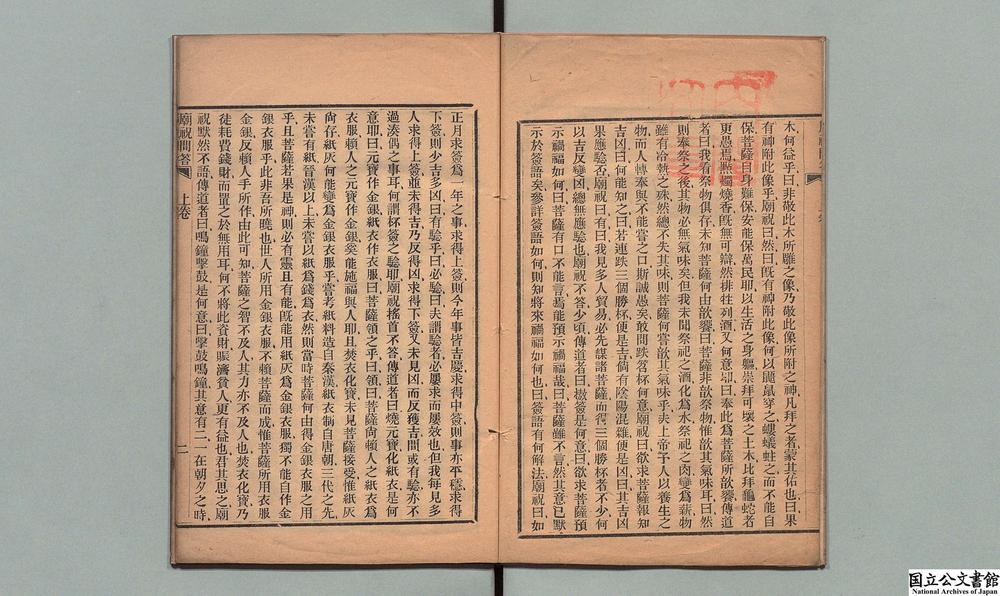 木何益乎曰非敬此木所雕之像乃敬此像所附之神凡拜之者蒙其佑也曰果
有神附此像乎廟祝曰然曰旣有神附此像何以鼠穿之螻蟻蛀之而不能自
保菩薩自身難保安能保萬民耶以生活之身軀崇拜可壞之土木比拜龜蛇者
更愚焉點燭燒香旣無可辯然排牲列酒又何意耶曰奉此爲菩薩所歆饗傳道
者曰我看祭物俱存未知菩薩何由歆饗曰菩薩非歆祭物惟歆其氣味耳曰然
則奉祭之後其物必無氣味矣但我未聞祭祀之酒化爲水祭祀之肉變爲薪物
雖有冷熱之殊然總不失其味則菩薩何嘗歆其氣味乎夫上帝予人以養生之
物而人轉奉與不能嘗之口斯誠愚矣敢問跌筶杯何意廟祝曰欲求菩薩報知
吉凶曰何能知之曰若連跌三個勝杯便是吉倘有陰陽混雜便是凶曰其吉凶
果應驗否廟祝曰有曰我見多人貿易必先謀諸菩薩而得三個勝杯者不少何
以吉反變凶總無應驗也廟祝不答少頃傳道者曰擲簽是何意曰欲求菩薩預
示禍福如何曰菩薩有口不能言焉能預示禍福哉曰菩薩雖不言然其意已默
示於簽語矣參詳簽語如何則知將來禍福如何也曰簽語有何解法廟祝曰如
正月求簽爲一年之事求得上簽則今年事皆吉慶求得中簽則事亦平穩求得
下簽則少吉多凶曰有驗乎曰必驗曰夫謂驗者必屢求而屢效也但我每見多
人求得上簽並未得吉乃反得凶求得下簽又未見凶而反獲吉間或有驗亦不
過湊偶之事耳何謂杯簽之驗耶廟祝搖首不答傳道者曰燒元寶化紙衣是何
意耶曰元寶作金銀紙衣作衣服曰菩薩領之乎曰領曰菩薩尙賴人之紙衣爲
衣服賴人之元寶作金銀奚能施福與人耶且焚衣化寶未見菩薩接受惟紙灰
尙存紙灰何能變爲金銀衣服乎嘗考紙料造自秦漢紙衣制自唐朝三代之先
未嘗有紙晉漢以上未嘗以紙爲錢爲衣然則當時菩薩何由得金銀衣服之用
乎且菩薩若果是神則必有靈且有能旣能用紙灰爲金銀衣服獨不能自作金
銀衣服乎此非吾所曉也世人所用金銀衣服不賴菩薩而成惟菩薩所用衣服
金銀反賴人手所作由此可知菩薩之智不及人其力亦不及人也焚衣化寶乃
徒耗費錢財而置之於無用耳何不將此資財賑濟貧人更有益也君其思之廟
祝默然不語傳道者曰鳴鐘擊鼓是何意曰擊鼓鳴鐘其意有二一在朝夕之時
廟祝問答 上卷 二
国立公文書館
National Archives of Japan